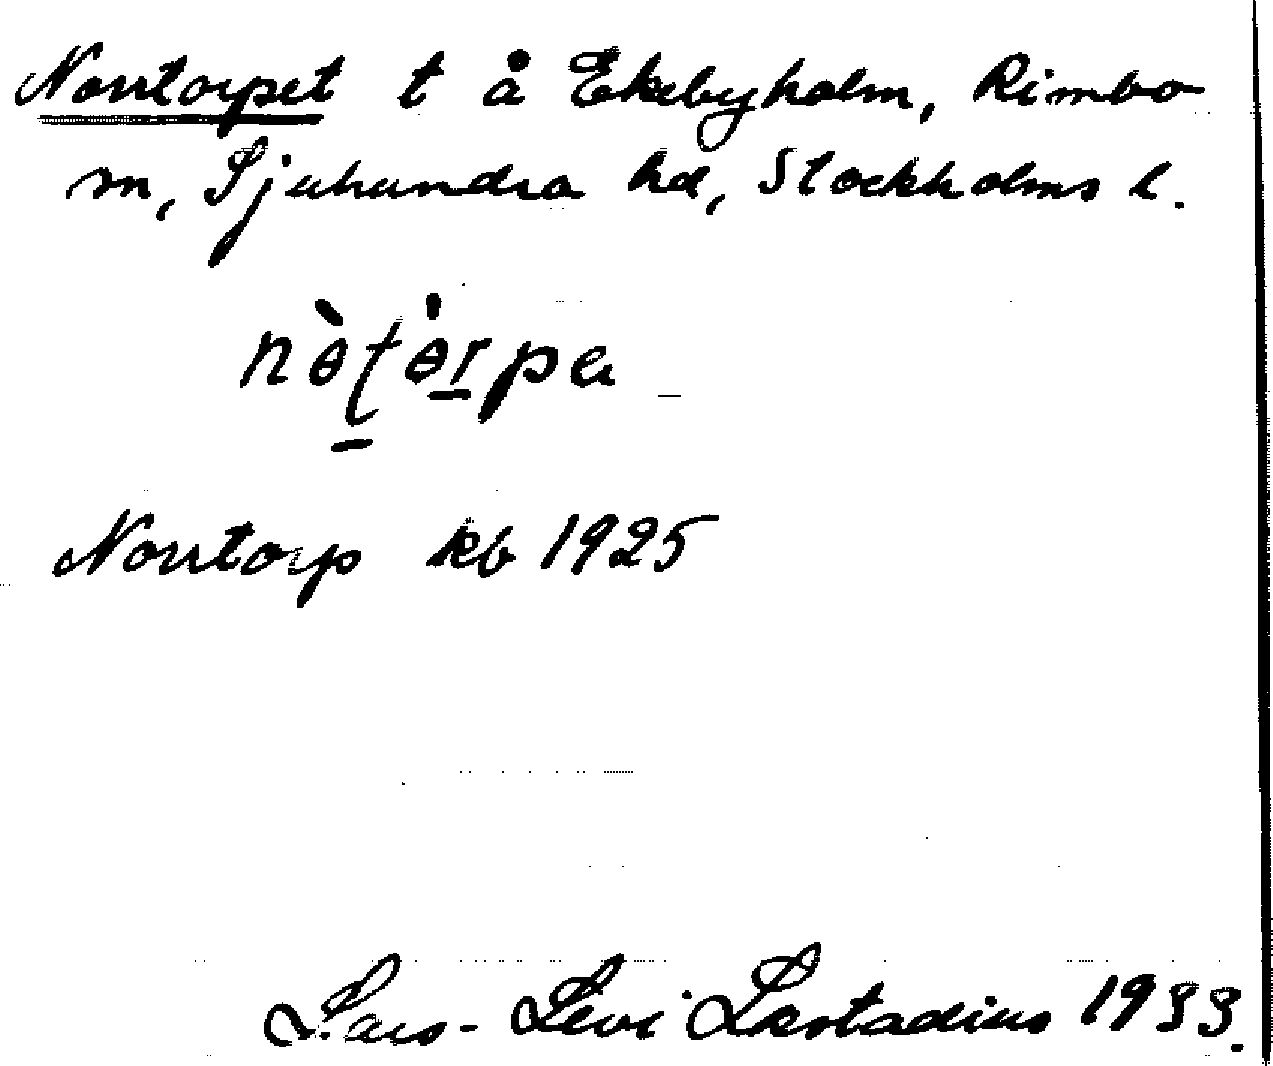 Norrtorpet t å Ekebyholm, Rimbo
sn, Sjuhundra hd, Stockholms l.
nòt̠ө̀r̠pa
Norrtorp kb 1925
Lars-Levi Læstadius 1933.